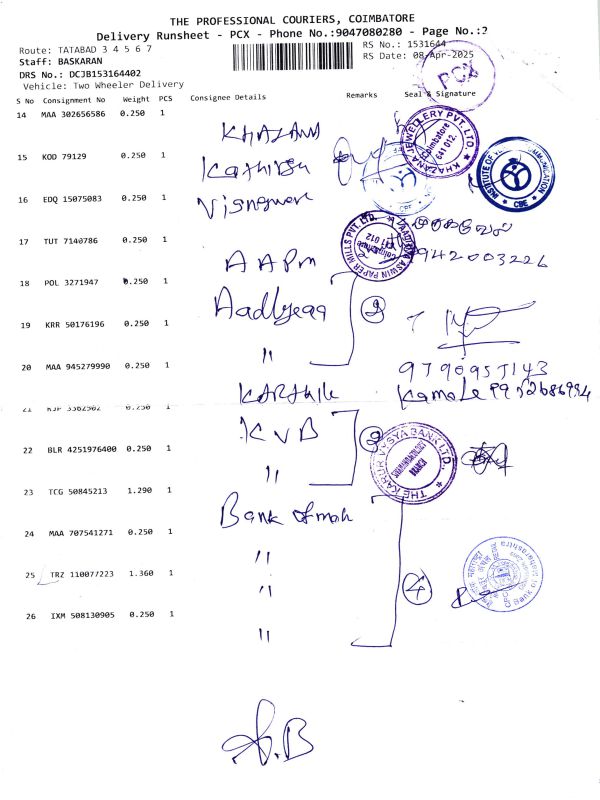 THE PROFESSIONAL COURIERS, COIMBATORE
Delivery Runsheet - PCX - Phone No.:9047080280 - Page No.:2
Route: TATABAD 3 4 5 6 7
RS No.: 1531644
Staff: BASKARAN
RS Date: 08-Apr-2025
DRS No.: DCJB153164402
PCX
Vehicle: Two Wheeler Delivery
S No Consignment No Weight PCS Consignee Details Remarks Seal & Signature
14 MAA 302656586 0.250 1
KHAZANA
KHAZANA JEWELLERY PVT. LTD.
Coimbatore 641 012.
15 KOD 79129 0.250 1
Kathirsu
INSTITUTE OF COMMUNICATION
CBE
16 EDQ 15075083 0.250 1
17 TUT 7140786 0.250 1
AAPM
ASWIN PAPER MILLS PVT. LTD.
9942003226
18 POL 3271947 0.250 1
2
19 KRR 50176196 0.250 1
"
20 MAA 945279990 0.250 1
9790957143
KARthik
Kamale
21 KJP 3362502 0.250 1
KVB
2
THE KARUR VYSYA BANK LTD.
BRANCH
22 BLR 4251976400 0.250 1
"
23 TCG 50845213 1.290 1
Bank of mah
24 MAA 707541271 0.250 1
"
25 TRZ 110077223 1.360 1
"
4
Bank of Maharashtra
26 IXM 508130905 0.250 1
"